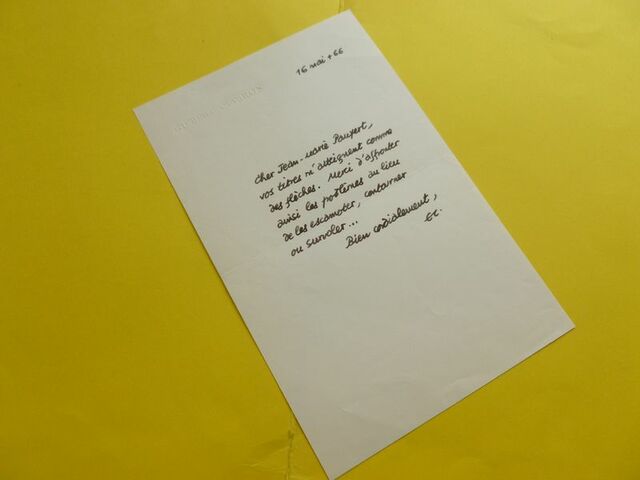 16 mai + 66
Cher Jean-Marie Paupert,
vos titres m'atteignent comme
des flèches. Merci d'affronter
ainsi les problèmes au lieu
de les escamoter, contourner
ou survoler...
Bien cordialement,